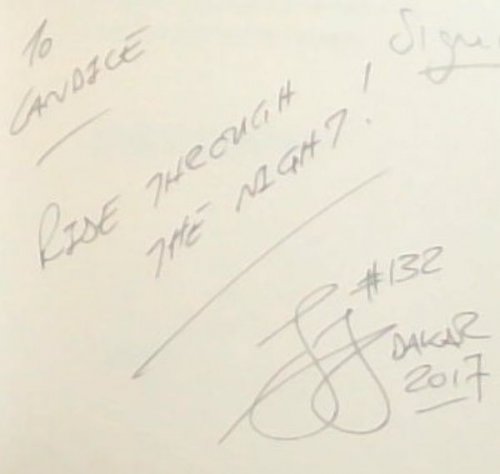 To
CANDICE
RIDE THROUGH
THE NIGHT!
#132
DAKAR
2017